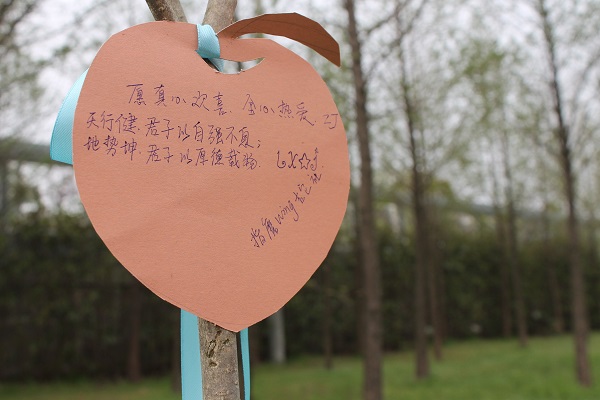 愿真心欢喜, 全心热爱
天行健, 君子以自强不息;
地势坤, 君子以厚德载物. LX☆
指魔 wmg